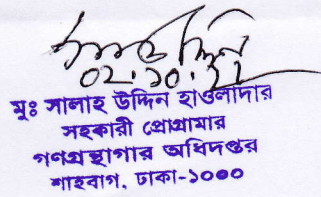 ০২.১০.২১
মুঃ সালাহ উদ্দিন হাওলাদার
সহকারী প্রোগ্রামার
গণগ্রন্থাগার অধিদপ্তর
শাহবাগ, ঢাকা-১০০০